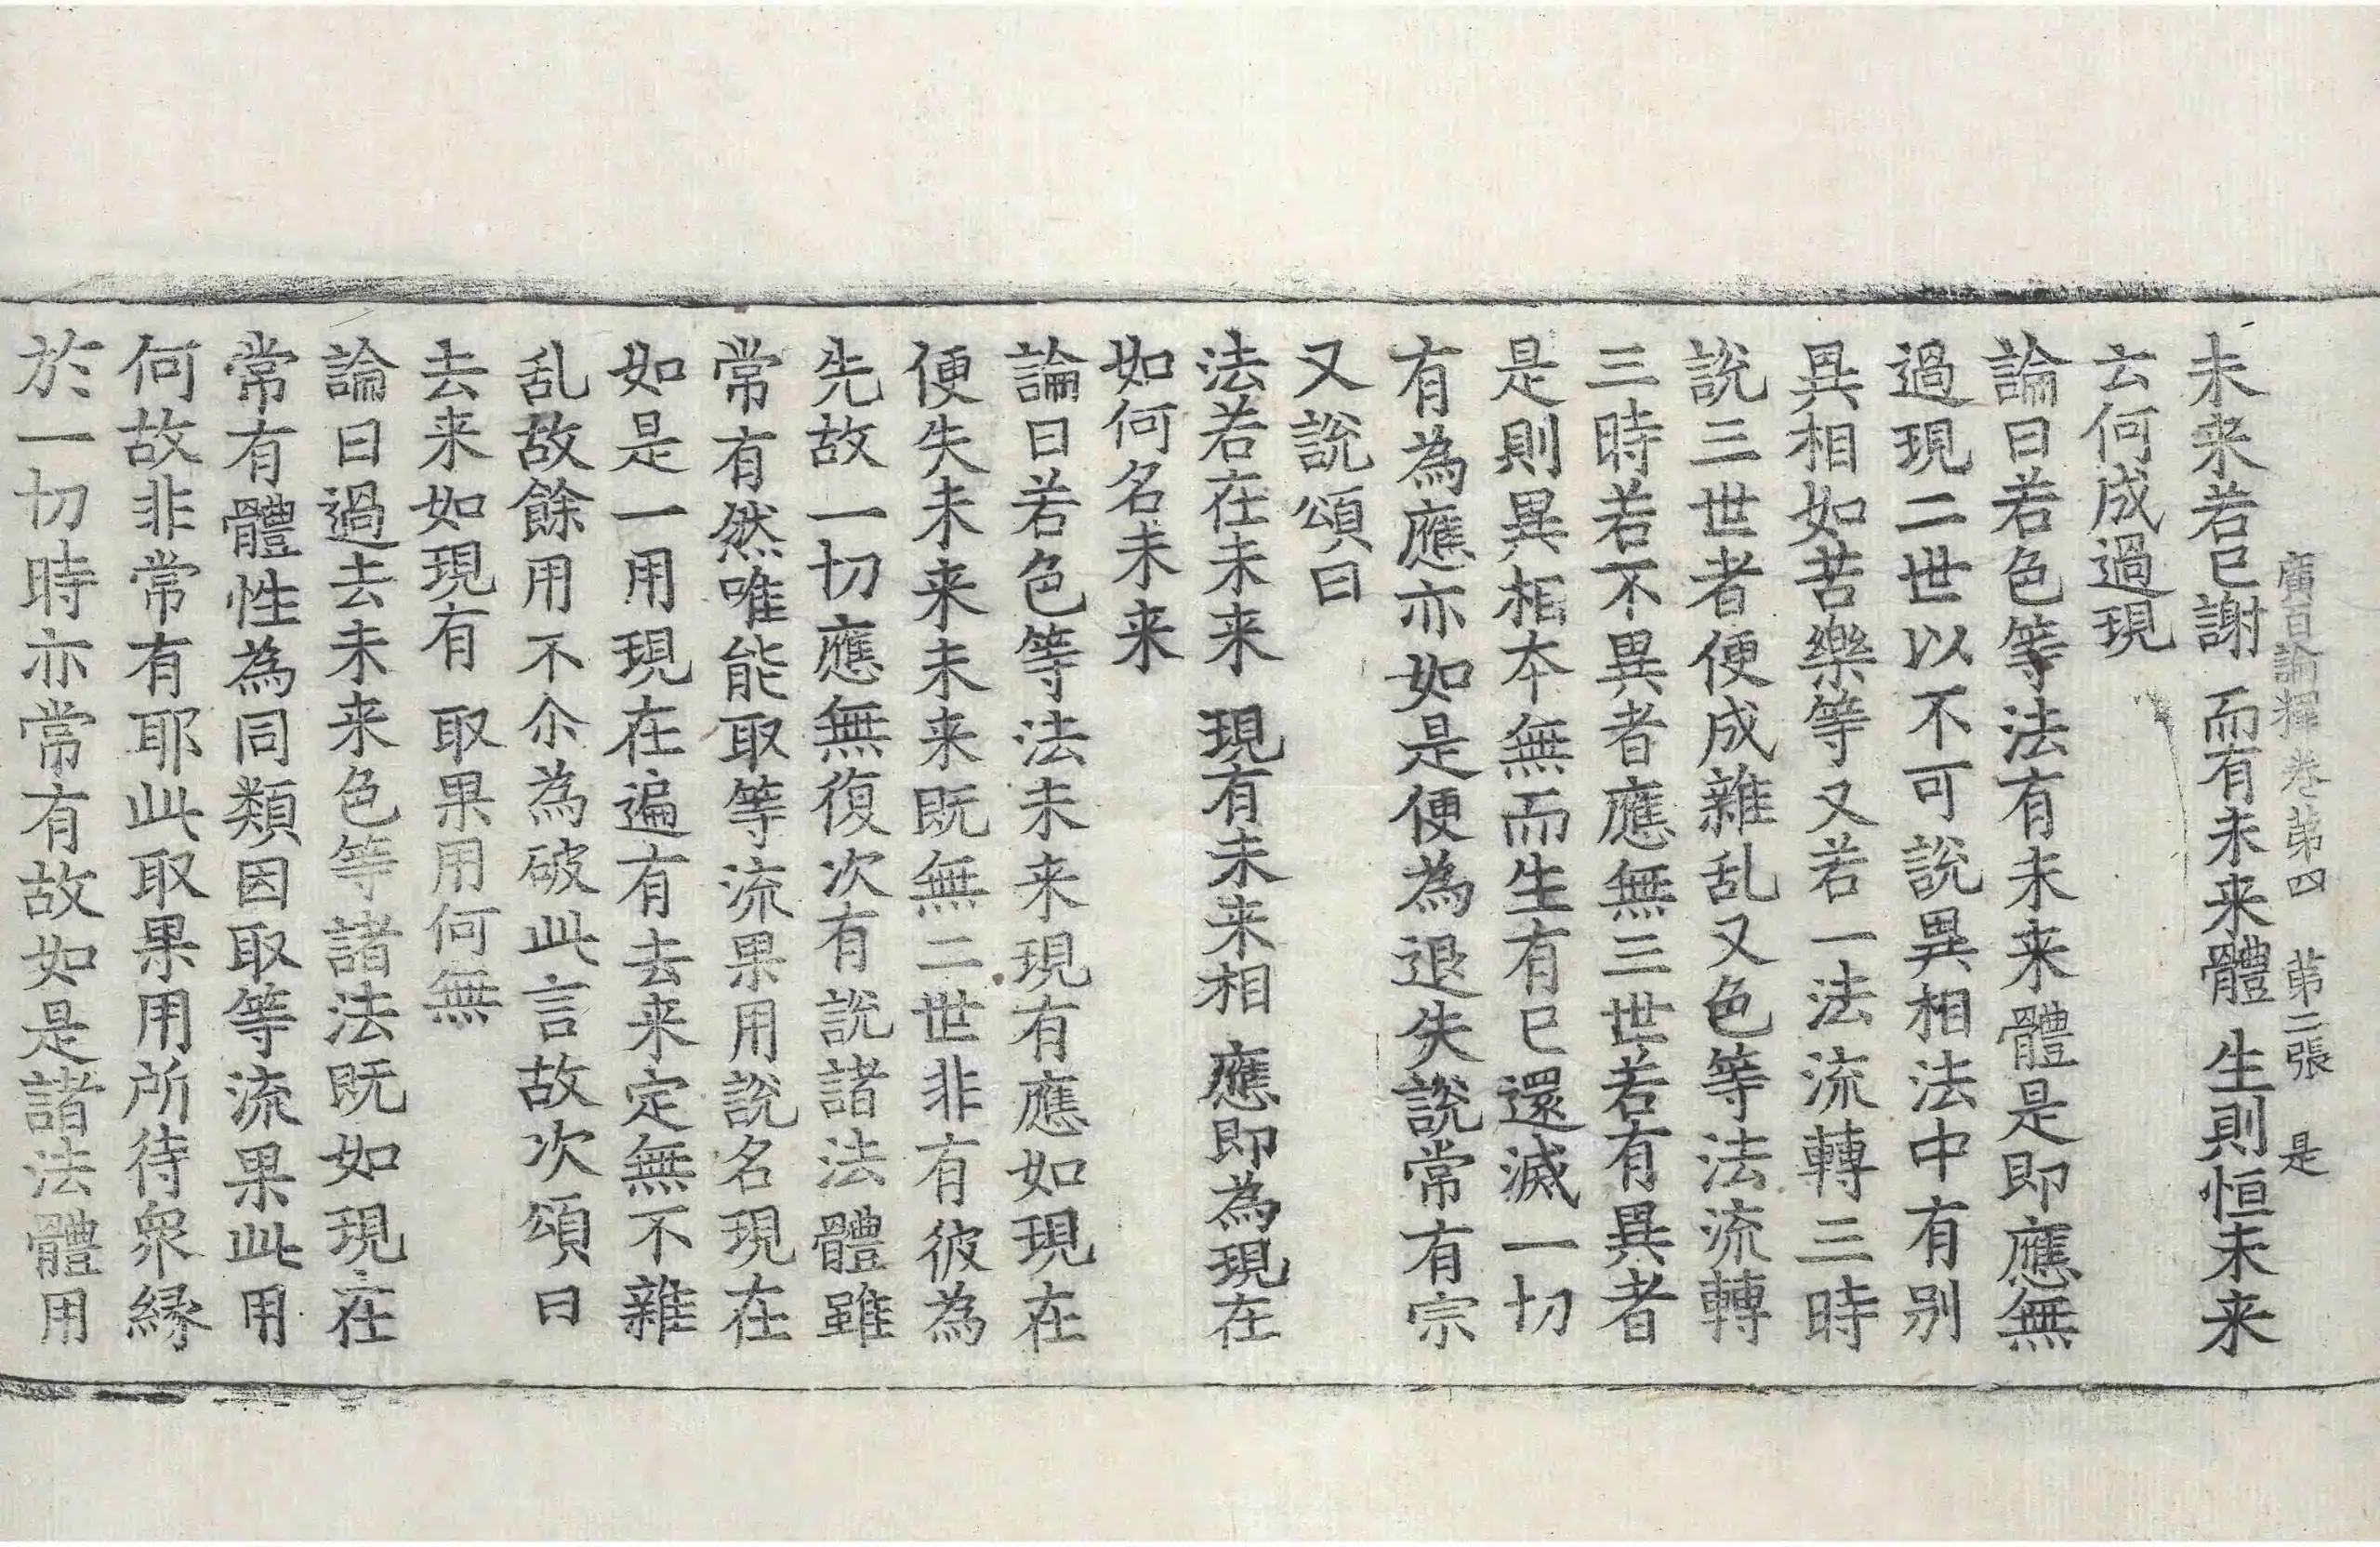 廣百論釋卷第四　第二張　是
未来若已謝　而有未来體　生則恒未来
云何成過現
論曰若色等法有未来體是即應無
過現二世以不可說異相法中有别
異相如苦樂等又若一法流轉三時
說三世者便成雜乱又色等法流轉
三時若不異者應無三世若有異者
是則異相本無而生有已還滅一切
有為應亦如是便為退失說常有宗
又說頌曰
法若在未来　現有未来相　應即為現在
如何名未来
論曰若色等法未来現有應如現在
便失未来未来既無二世非有彼為
先故一切應無復次有說諸法體雖
常有然唯能取等流果用說名現在
如是一用現在遍有去来定無不雜
乱故餘用不尒為破此言故次頌曰
去来如現有　取果用何無
論曰過去未来色等諸法既如現在
常有體性為同類因取等流果此用
何故非常有耶此取果用所待衆縁
於一切時亦常有故如是諸法體用